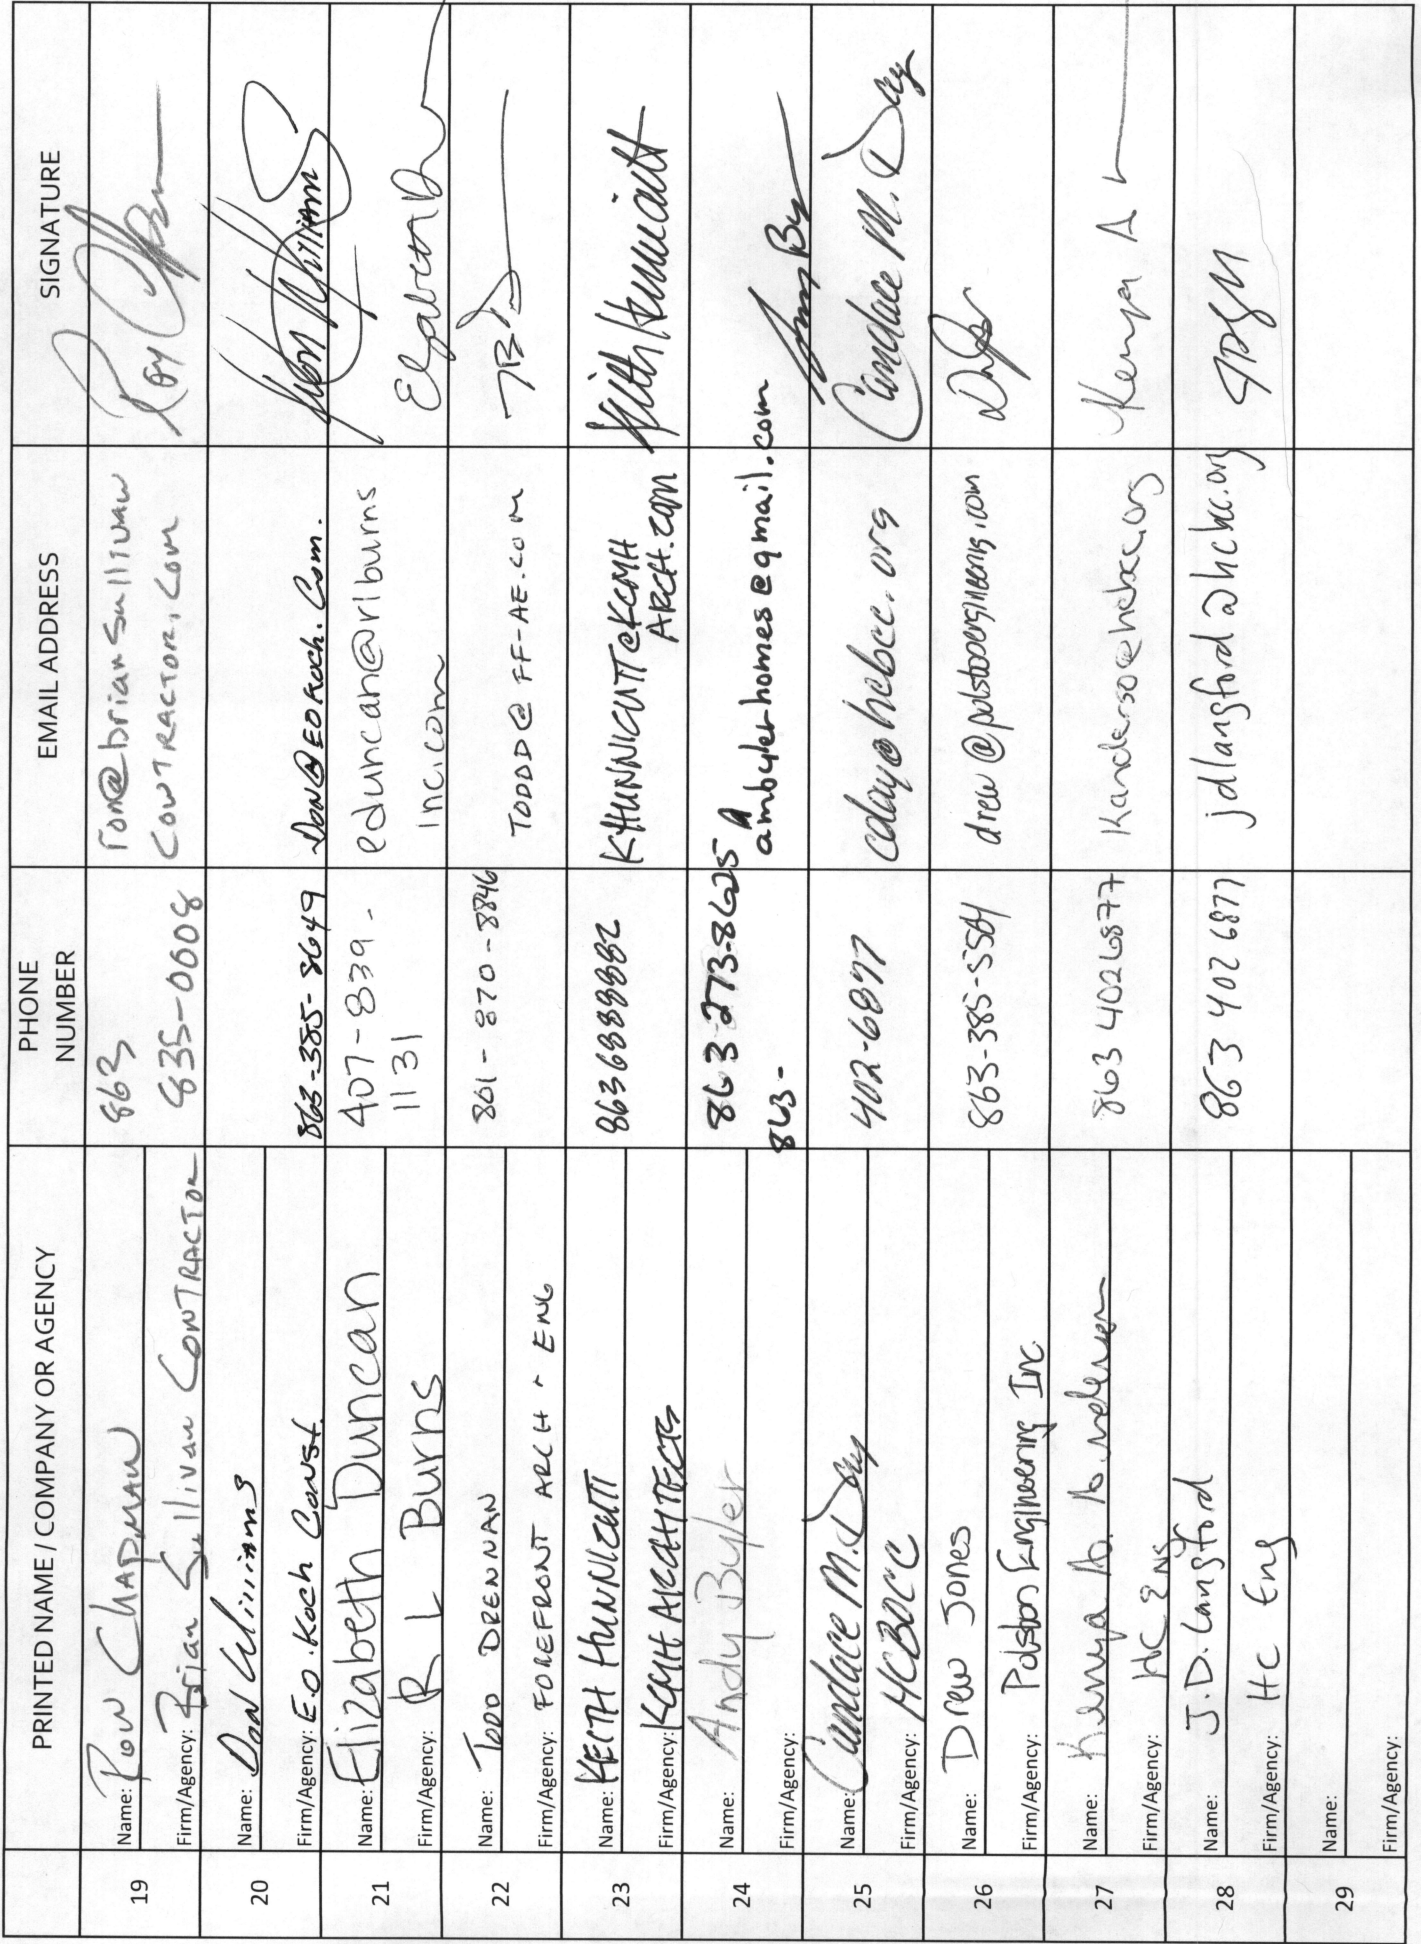 PRINTED NAME / COMPANY OR AGENCY
PHONE NUMBER
EMAIL ADDRESS
SIGNATURE
19
Name: Ron Chapman
Firm/Agency: Brian Sullivan Contractor
863
835-0008
ron@brian sullivan
contractor.com
20
Name: Don Williams
Firm/Agency: E.O. Koch Const.
863-385-8649
Don@EOKoch.Com.
Don Williams
21
Name: Elizabeth Duncan
Firm/Agency: R L Burns
407-839-
1131
eduncan@rlburns
inc.com
22
Name: TODD DRENNAN
Firm/Agency: FOREFRONT ARCH + ENG
801-870-8846
TODDD@FF-AE.COM
23
Name: KEITH HUNNICUTT
Firm/Agency: KCMH ARCHITECTS
8636888882
KHUNNICUTT@KCMH
ARCH.COM
Keith Hunnicutt
24
Name: Andy Byler
Firm/Agency:
863-273-8625
863-
ambylerhomes@gmail.com
25
Name: Candace M. Day
Firm/Agency: HCBOCC
402-6877
cday@hcbcc.org
Candace M. Day
26
Name: Drew Jones
Firm/Agency: Polston Engineering Inc.
863-385-5564
drew@polstonengineering.com
27
Name: Kenya A. Anderson
Firm/Agency: HC Eng
863 4026877
Kanderso@hcbcc.org
Kenya A
28
Name: J.D. Langford
Firm/Agency: HC Eng
863 402 6877
jdlangford@hcbcc.org
29
Name:
Firm/Agency: